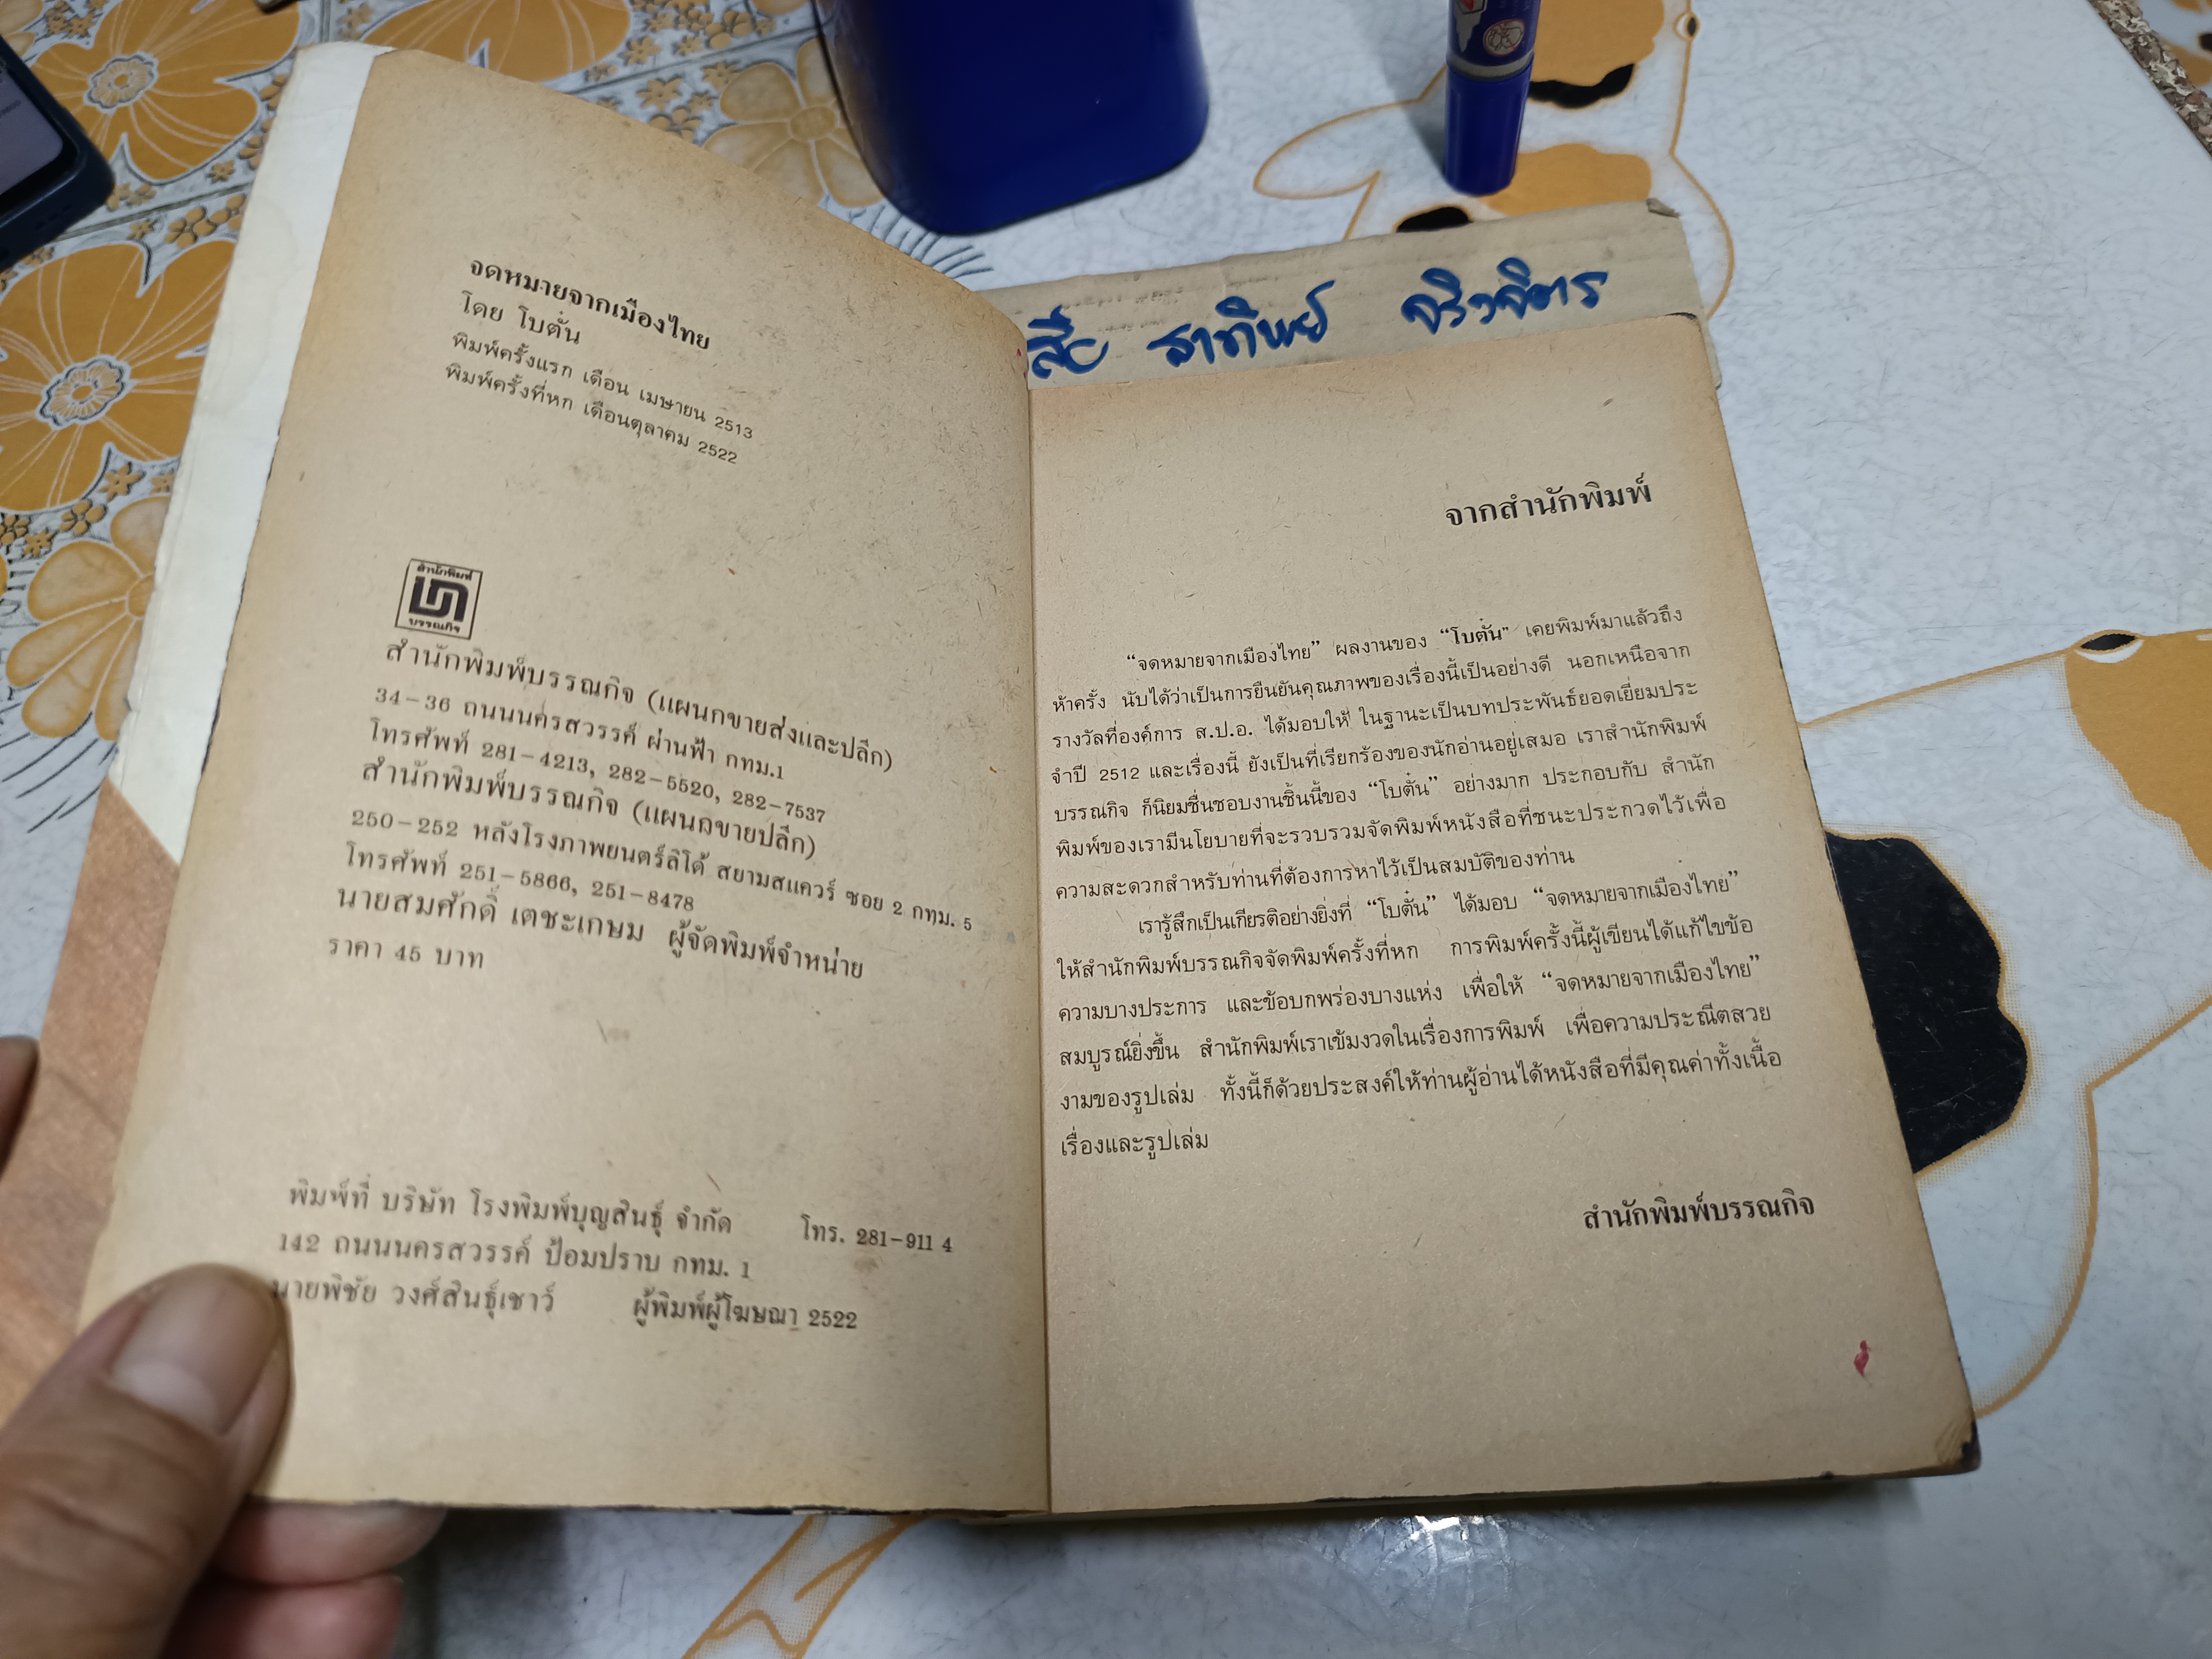 จดหมายจากเมืองไทย
โดย โบตั๋น
พิมพ์ครั้งแรก เดือน เมษายน 2513
พิมพ์ครั้งที่หก เดือนตุลาคม 2522
สำนักพิมพ์
บรรณกิจ
สำนักพิมพ์บรรณกิจ (แผนกขายส่งและปลีก)
34-36 ถนนนครสวรรค์ ผ่านฟ้า กทม.1
โทรศัพท์ 281-4213, 282-5520, 282-7537
สำนักพิมพ์บรรณกิจ (แผนกขายปลีก)
250-252 หลังโรงภาพยนตร์ลิโด้ สยามสแควร์ ซอย 2 กทม. 5
โทรศัพท์ 251-5866, 251-8478
นายสมศักดิ์ เตชะเกษม ผู้จัดพิมพ์จำหน่าย
ราคา 45 บาท
พิมพ์ที่ บริษัท โรงพิมพ์บุญสินธุ์ จำกัด โทร. 281-911 4
142 ถนนนครสวรรค์ ป้อมปราบ กทม. 1
นายพิชัย วงศ์สินธุ์เชาว์ ผู้พิมพ์ผู้โฆษณา 2522
จากสำนักพิมพ์
“จดหมายจากเมืองไทย” ผลงานของ “โบตั๋น” เคยพิมพ์มาแล้วถึง
ห้าครั้ง นับได้ว่าเป็นการยืนยันคุณภาพของเรื่องนี้เป็นอย่างดี นอกเหนือจาก
รางวัลที่องค์การ ส.ป.อ. ได้มอบให้ ในฐานะเป็นบทประพันธ์ยอดเยี่ยมประ
จำปี 2512 และเรื่องนี้ ยังเป็นที่เรียกร้องของนักอ่านอยู่เสมอ เราสำนักพิมพ์
บรรณกิจ ก็นิยมชื่นชอบงานชิ้นนี้ของ “โบตั๋น” อย่างมาก ประกอบกับ สำนัก
พิมพ์ของเรามีนโยบายที่จะรวบรวมจัดพิมพ์หนังสือที่ชนะประกวดไว้เพื่อ
ความสะดวกสำหรับท่านที่ต้องการหาไว้เป็นสมบัติของท่าน
เรารู้สึกเป็นเกียรติอย่างยิ่งที่ “โบตั๋น” ได้มอบ “จดหมายจากเมืองไทย”
ให้สำนักพิมพ์บรรณกิจจัดพิมพ์ครั้งที่หก การพิมพ์ครั้งนี้ผู้เขียนได้แก้ไขข้อ
ความบางประการ และข้อบกพร่องบางแห่ง เพื่อให้ “จดหมายจากเมืองไทย”
สมบูรณ์ยิ่งขึ้น สำนักพิมพ์เราเข้มงวดในเรื่องการพิมพ์ เพื่อความประณีตสวย
งามของรูปเล่ม ทั้งนี้ก็ด้วยประสงค์ให้ท่านผู้อ่านได้หนังสือที่มีคุณค่าทั้งเนื้อ
เรื่องและรูปเล่ม
สำนักพิมพ์บรรณกิจ